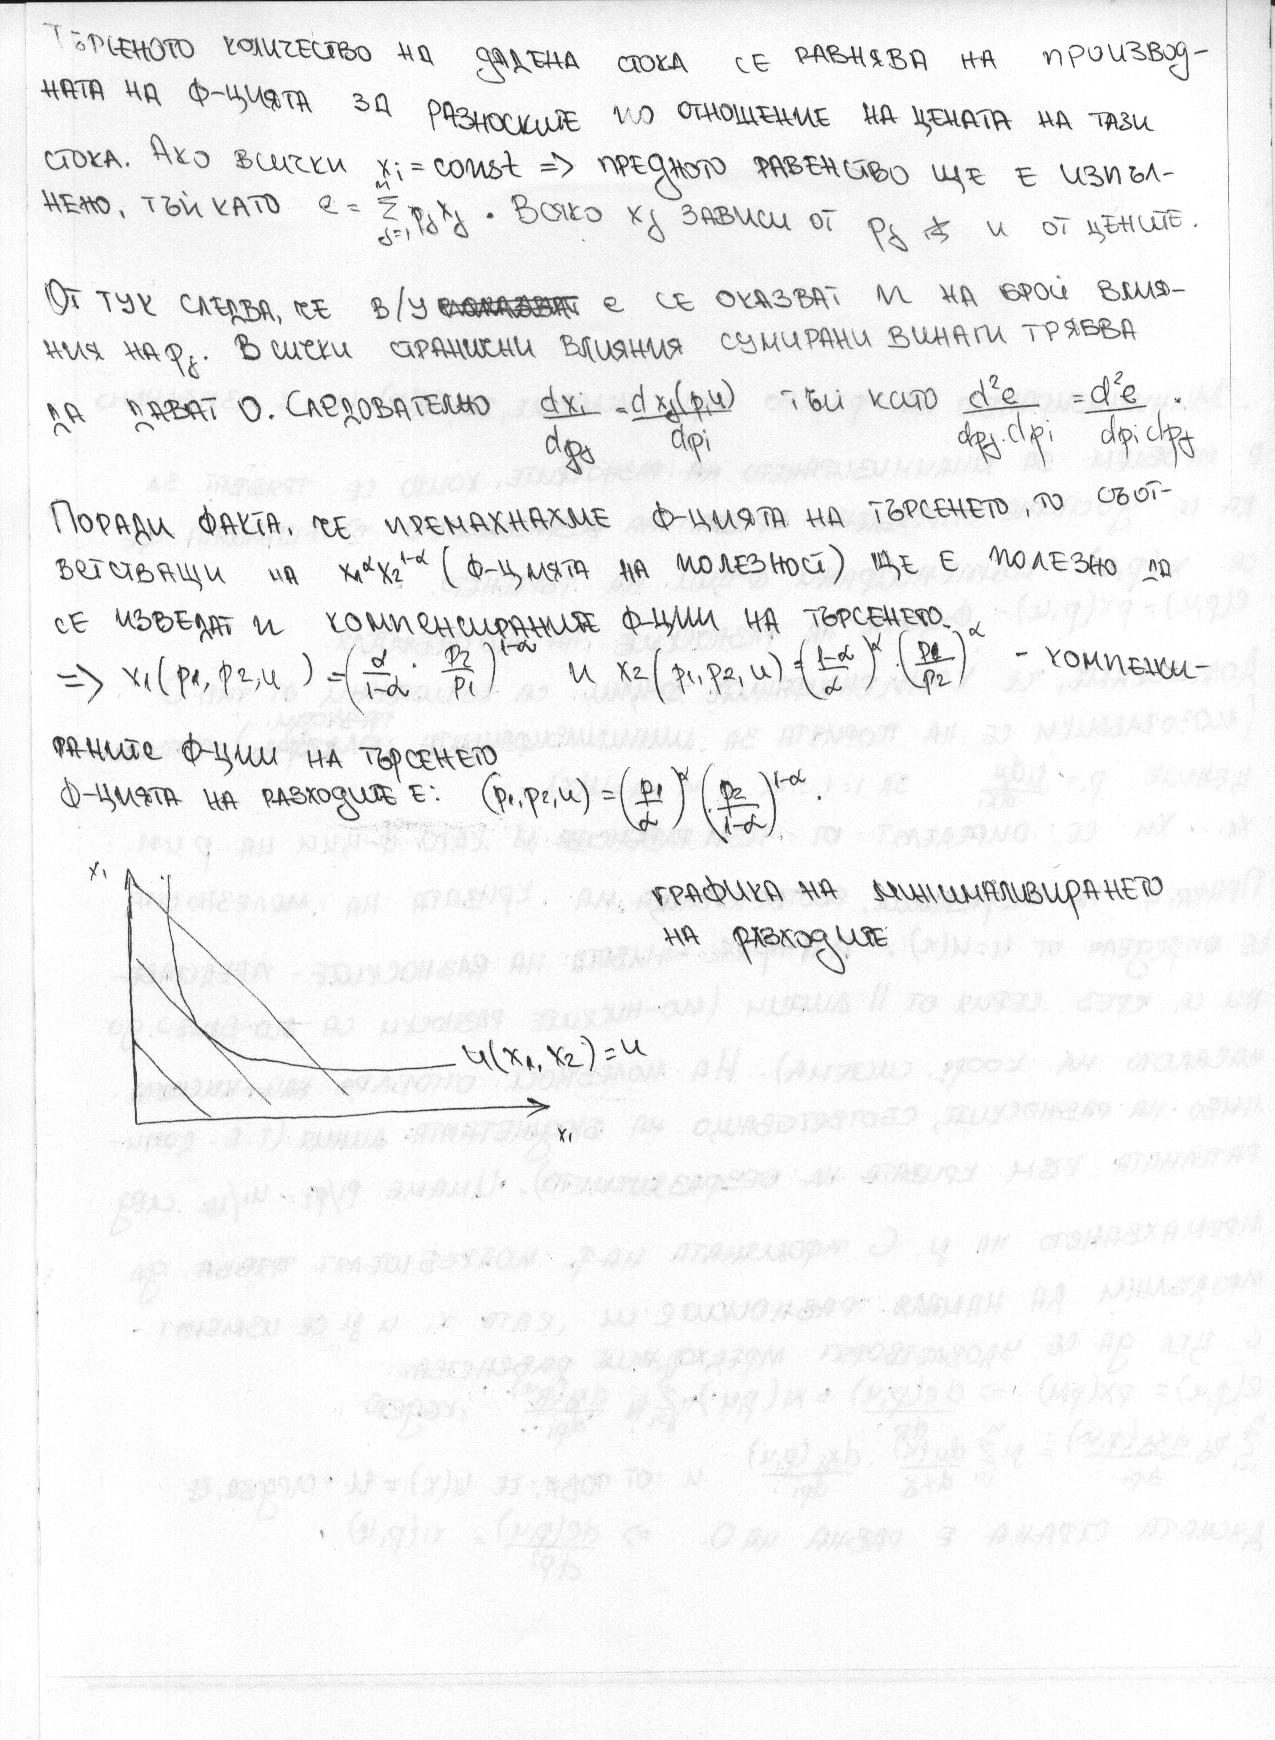 Търсеното количество на дадена стока се равнява на производ-
ната на ф-цията за разноските по отношение на цената на тази
стока. Ако всички xi = const => предното равенство ще е изпъл-
нено, тъй като e = Σ_{j=1}^{n} pj xj. Всяко xj зависи от pj и от цените.
От тук следва, че в/у e се оказват n на брой влия-
ния на pj. Всички странични влияния сумирани винаги трябва
да дават 0. Следователно dxi/dpj = dxj(p,u)/dpi тъй като d²e/dpj.dpi = d²e/dpi dpj.
Поради факта, че премахнахме ф-цията на търсенето, то съот-
ветстващи на x1^α x2^1-α (ф-цията на полезност) ще е полезно да
се изведат и компенсираните ф-ции на търсенето.
=> x1(p1, p2, u) = (α/1-α · p2/p1)^1-α и x2(p1, p2, u) = (1-α/α)^α · (p1/p2)^α - компенси-
раните ф-ции на търсенето
Ф-цията на разходите е: (p1, p2, u) = (p1/α)^α (p2/1-α)^1-α.
x1
графика на минимализирането
на разходите
u(x1, x2) = u
x1